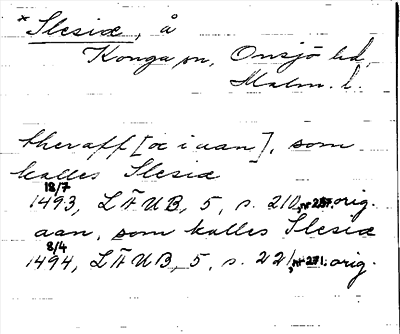 *Slesiæ, å
Konga sn, Onsjö hd,
Malm. l.
theraff [ɔ: i aan], som
kalles Slesiæ
18/7
1493, LÄUB, 5, s. 210, nr 257. orig.
aan, som kalles Slesiæ
8/4
1494, LÄUB, 5, s. 221, nr 271. orig.